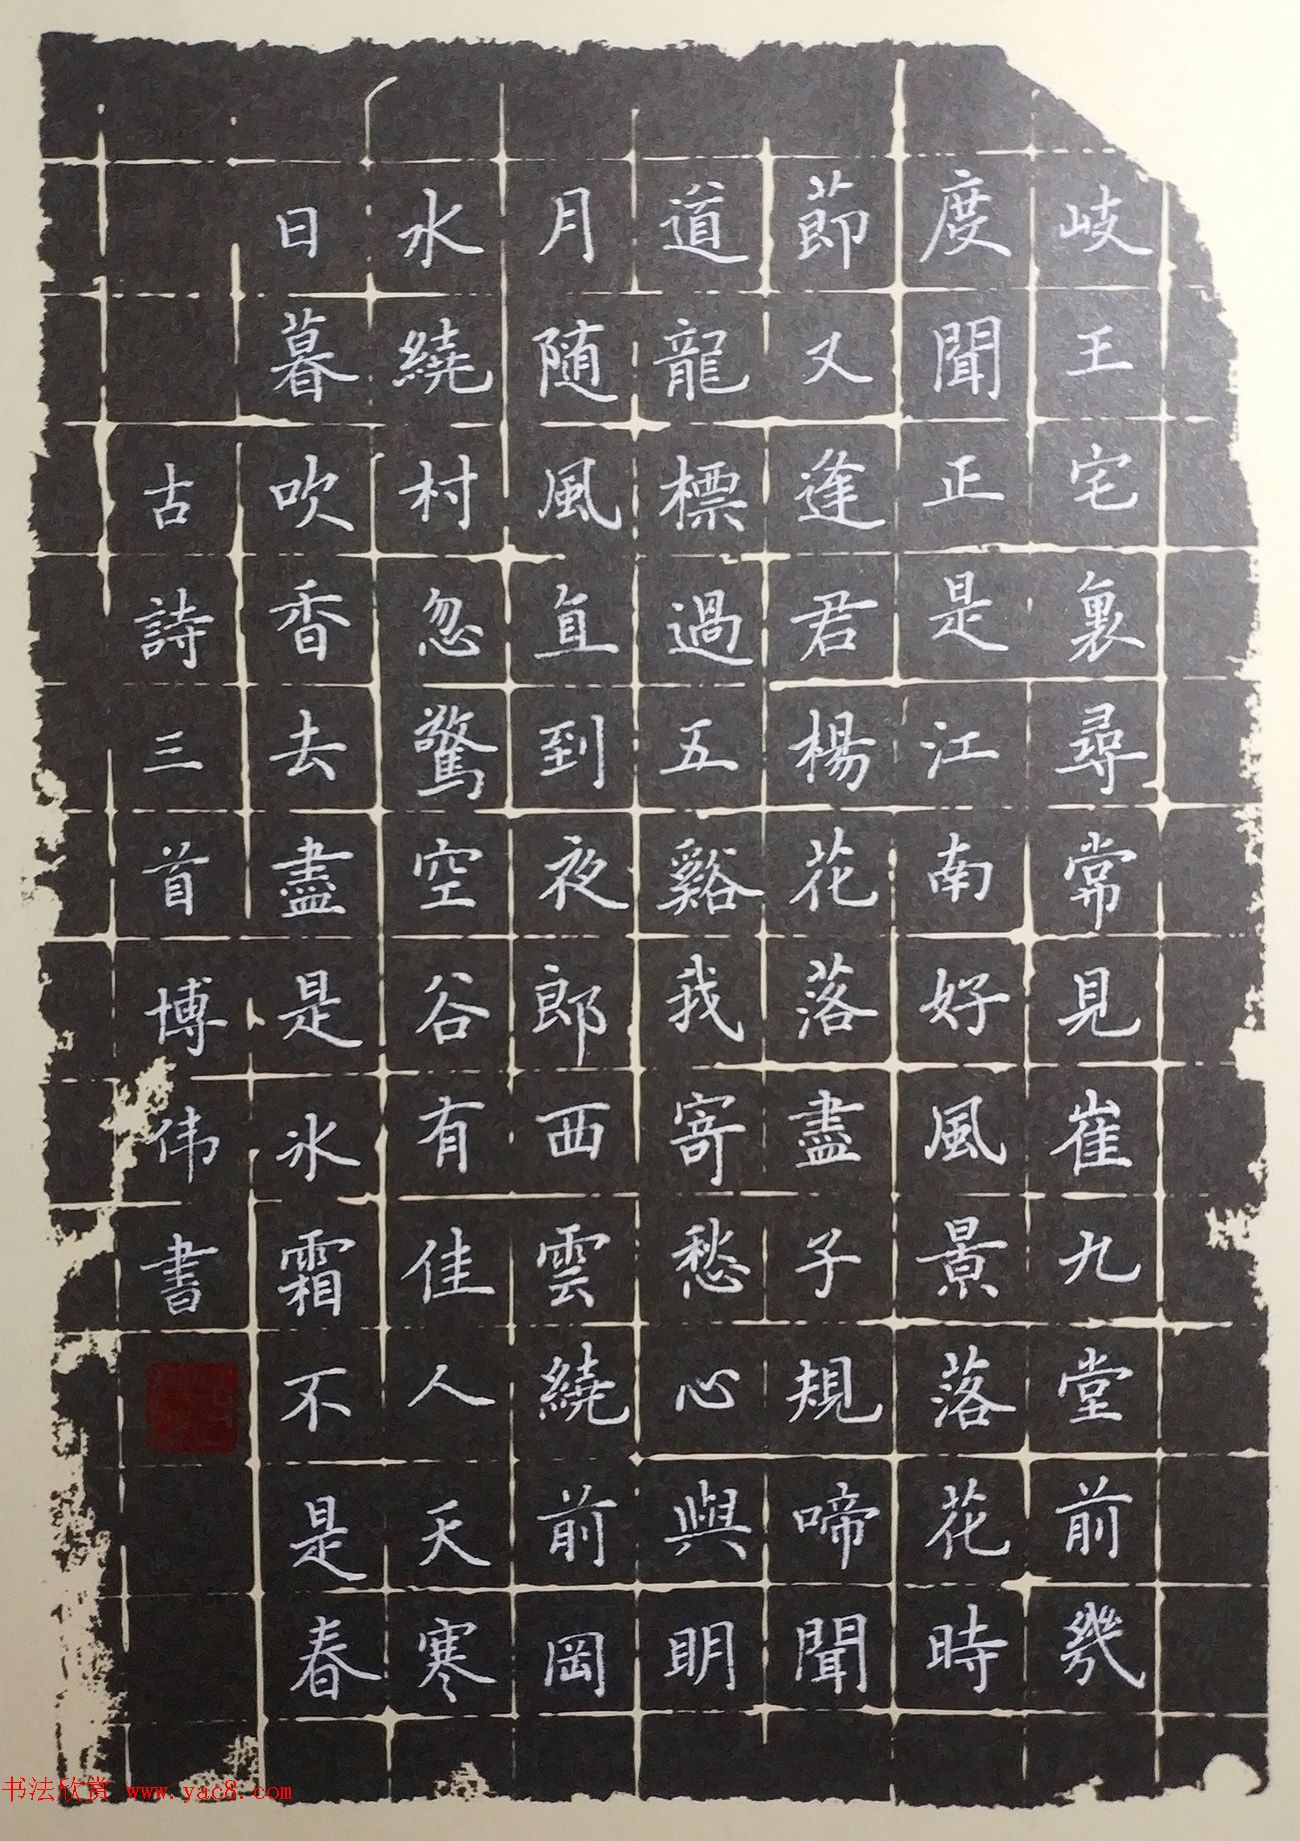 岐王宅裏尋常見崔九堂前幾
度聞正是江南好風景落花時
節又逢君楊花落盡子規啼聞
道龍標過五谿我寄愁心與明
月随風直到夜郎西雲繞前岡
水繞村忽驚空谷有佳人天寒
日暮吹香去盡是冰霜不是春
古詩三首博伟書
书法欣赏 www.yac8.com